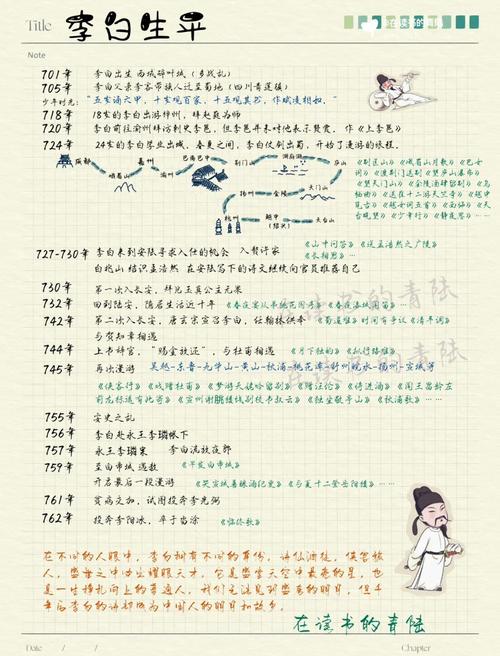 Title 李白生平
Note
701年 李白出生 西域碎叶城(多战乱)
705年 李白父亲李客带族人迁至蜀地(四川青莲镇)
少年时光:"五岁诵六甲,十岁观百家,十五观奇书,作赋凌相如。"
718年 18岁的李白出游梓州,拜赵蕤为师
720年 李白前往渝州拜访刺史李邕,但李邕并未对他表示赞赏,作《上李邕》
724年 24岁的李白学业成,暮春之间,李白仗剑出蜀,开始了漫游的旅程。
成都 嘉州 渝州 巴南巴中 荆门 洞庭湖 庐山
天门山 金陵 扬州
杭州 越中(绍兴) 天台山
《别匡山》《峨眉山月歌》《巴女
词》《渡荆门送别》《望庐山瀑布》
《望天门山》《金陵酒肆留别》《乌
栖曲》《送友十二游天竺寺》《越中
览古》《越女词五首》《西施》《天
台晓望》《少年行》《静夜思》……
727-730年 李白来到安陆寻求入仕的机会 入赘许家
《山中问答》《送孟浩然之广陵》
《长相思》……
白兆山 结识孟浩然 在安陆写下的诗文继续向官员推荐自己
730年 第一次入长安,拜见玉真公主无果
732年 回到陆安,隐居生活近十年 《春夜宴从弟桃花园序》《春夜洛城闻笛》
742年 第二次入长安,唐玄宗宣召李白,任翰林供奉 《蜀道难》时间有争议《清平调》
与贺知章相遇
744年 上书辞官,"赐金放还",与杜甫相遇 《月下独酌》《行路难》
745年 再次漫游 吴越-东鲁-九华山-黄山-秋浦-桃花潭-舒州皖水-扬州-宣城等
《侠客行》《戏赠杜甫》《梦游天姥吟留别》《赠汪伦》《将进酒》《闻王昌龄左
迁龙标遥有此寄》《宣州谢朓楼饯别校书叔云》《独坐敬亭山》《秋浦歌》……
755年 安史之乱
756年 李白赴永王李璘帐下
757年 永王李璘案 李白流放夜郎
759年 至白帝城 遇赦 《早发白帝城》
开启最后一段漫游 《哭宣城善酿酒纪叟》《与夏十二登岳阳楼》……
761年 贫病交加,试图投奔李光弼
762年 投奔李阳冰,卒于当涂 《临终歌》
在不同的人眼中,李白拥有不同的身份,诗仙酒徒,侠客旅
人,盛世之中的耀眼天才。它是盛唐天空中最亮的星,也
是一生挣扎向上的普通人,我们无法见到盛唐的明月,但千
年后李白的诗却成为中国人的明月和故乡。
在读书的青陆
Date / / Chapter